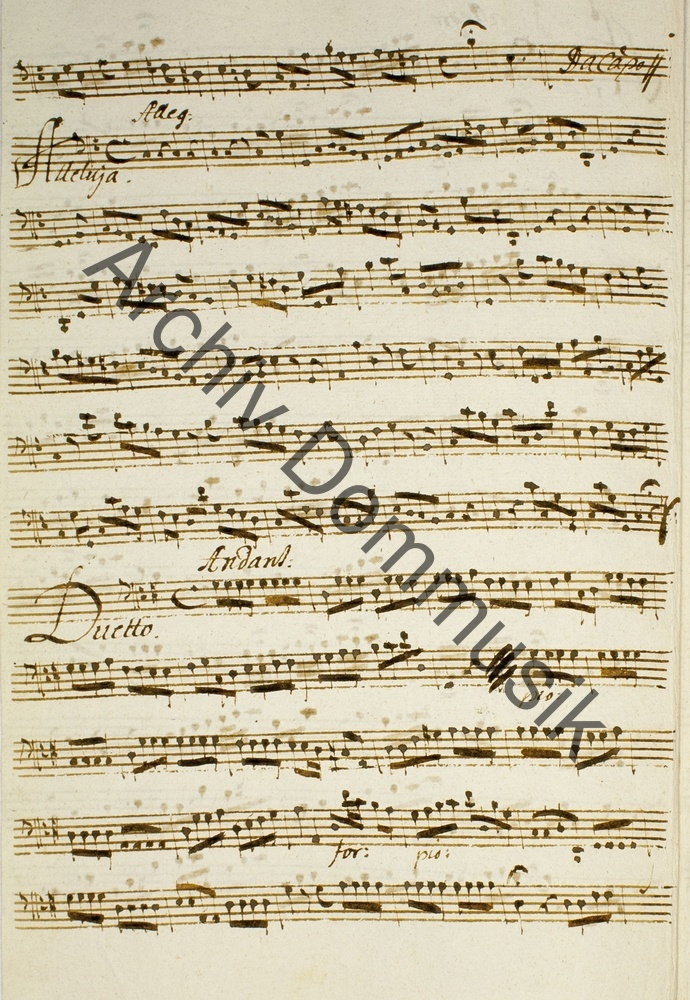 Da Capo
Alleg:
Alleluja.
Andant:
Duetto.
pio:
for: pio:
Archiv Dommusik